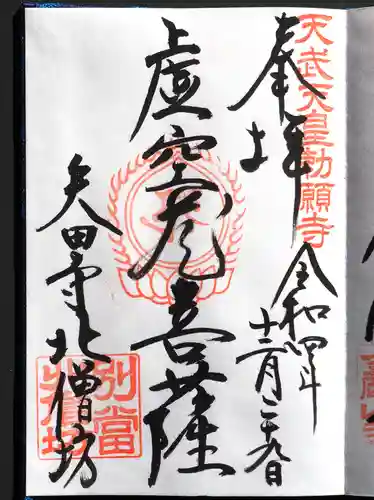 天武天皇勅願寺
奉拝
令和四年
十二月二十九日
虚空蔵菩薩
矢田寺北僧坊
別當
北僧坊